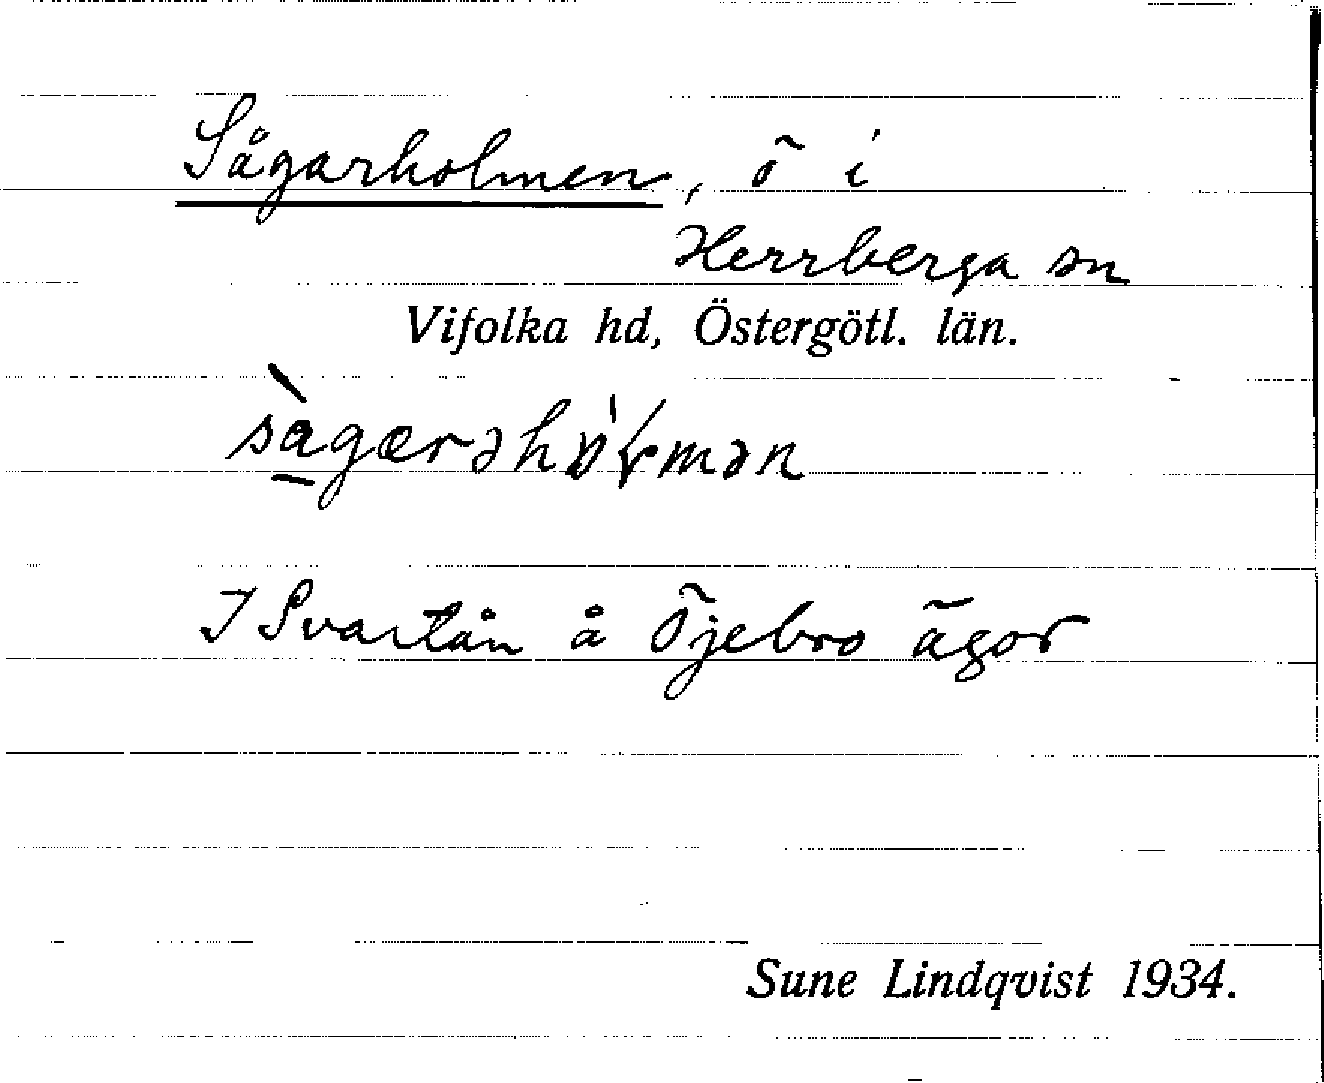 Sågarholmen, ö i
Herrberga sn
Vifolka hd, Östergötl. län.
I Svartån å Öjebro ägor
Sune Lindqvist 1934.